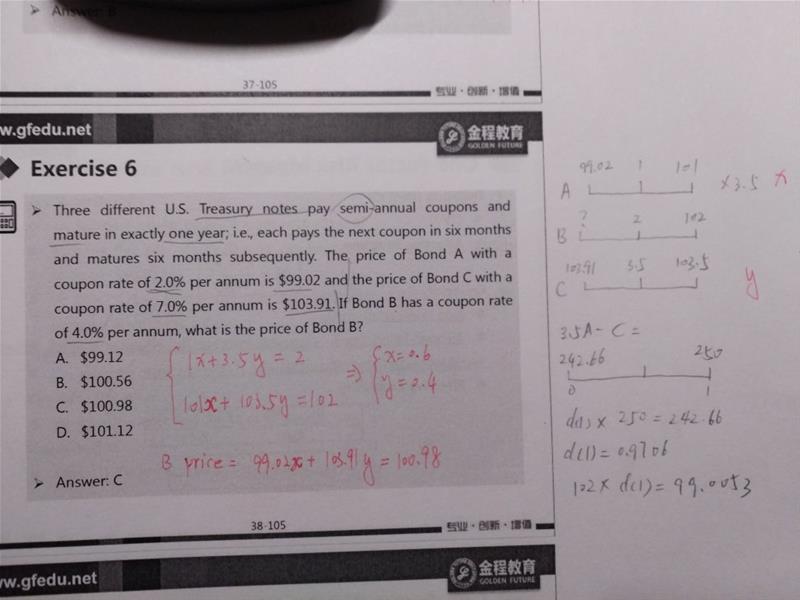 Answer: B
37-105
专业·创新·增值
w.gfedu.net
金程教育
GOLDEN FUTURE
Exercise 6
Three different U.S. Treasury notes pay semi-annual coupons and
mature in exactly one year; i.e., each pays the next coupon in six months
and matures six months subsequently. The price of Bond A with a
coupon rate of 2.0% per annum is $99.02 and the price of Bond C with a
coupon rate of 7.0% per annum is $103.91. If Bond B has a coupon rate
of 4.0% per annum, what is the price of Bond B?
A. $99.12
B. $100.56
C. $100.98
D. $101.12
1x+3.5y=2
101x+103.5y=102
⇒
x=0.6
y=0.4
B price= 99.02x+103.91y=100.98
Answer: C
38-105
专业·创新·增值
ww.gfedu.net
金程教育
GOLDEN FUTURE
99.02 1 101
A ×3.5 x
? 2 102
B
103.91 3.5 103.5
C y
3.5A-C=
242.66 250
0 1
d(1)×250=242.66
d(1)=0.9706
102×d(1)=99.0053